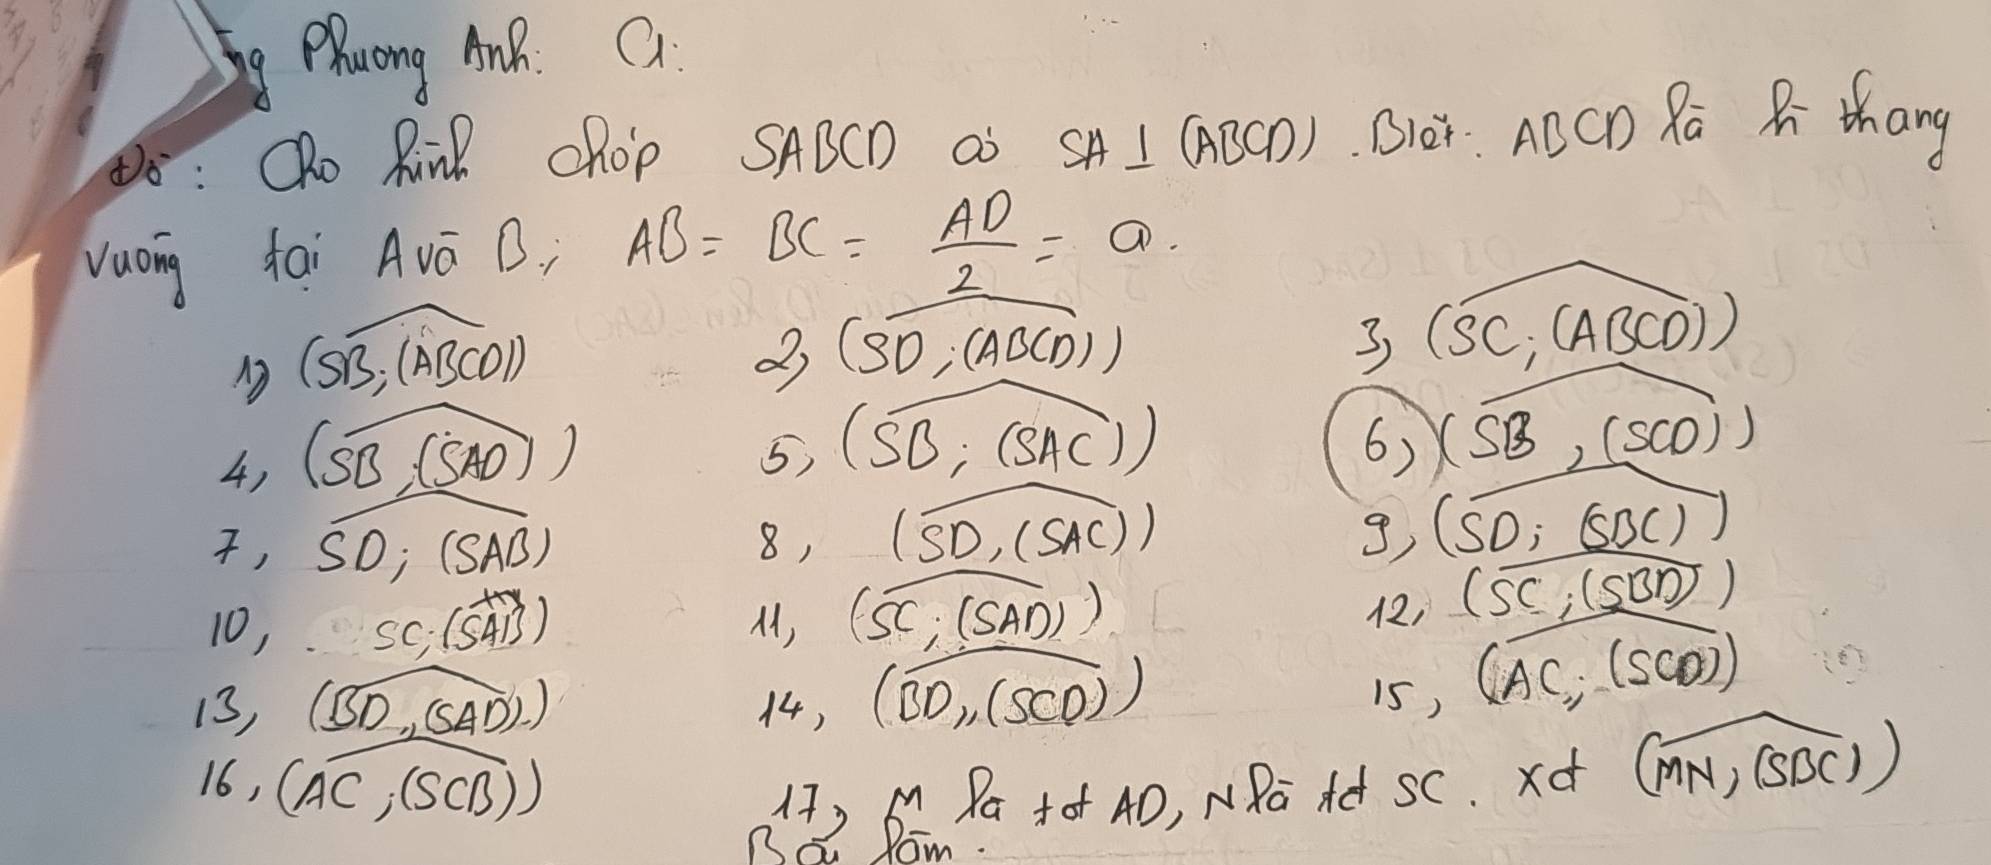 Phương Anh: G:
Đề: Cho hình chóp SABCD có SA ⊥ (ABCD). Biết: ABCD là h thang
vuông tại A và B; AB = BC = AD/2 = a.
1) (SB; (ABCD)) 2) (SD; (ABCD)) 3, (SC; (ABCD))
4, (SB; (SAD)) 5, (SB; (SAC)) 6, (SB, (SCD))
7, SD; (SAB) 8, (SD, (SAC)) 9, (SD; (SBC))
10, SC; (SAB) 11, (SC; (SAD)) 12, (SC; (SBD))
13, (BD, (SAD)) 14, (BD, (SCD)) 15, (AC; (SCD))
16, (AC; (SCB)) 17, M là tđ AD, N là tđ SC. xđ (MN; (SBC))
Bài làm.